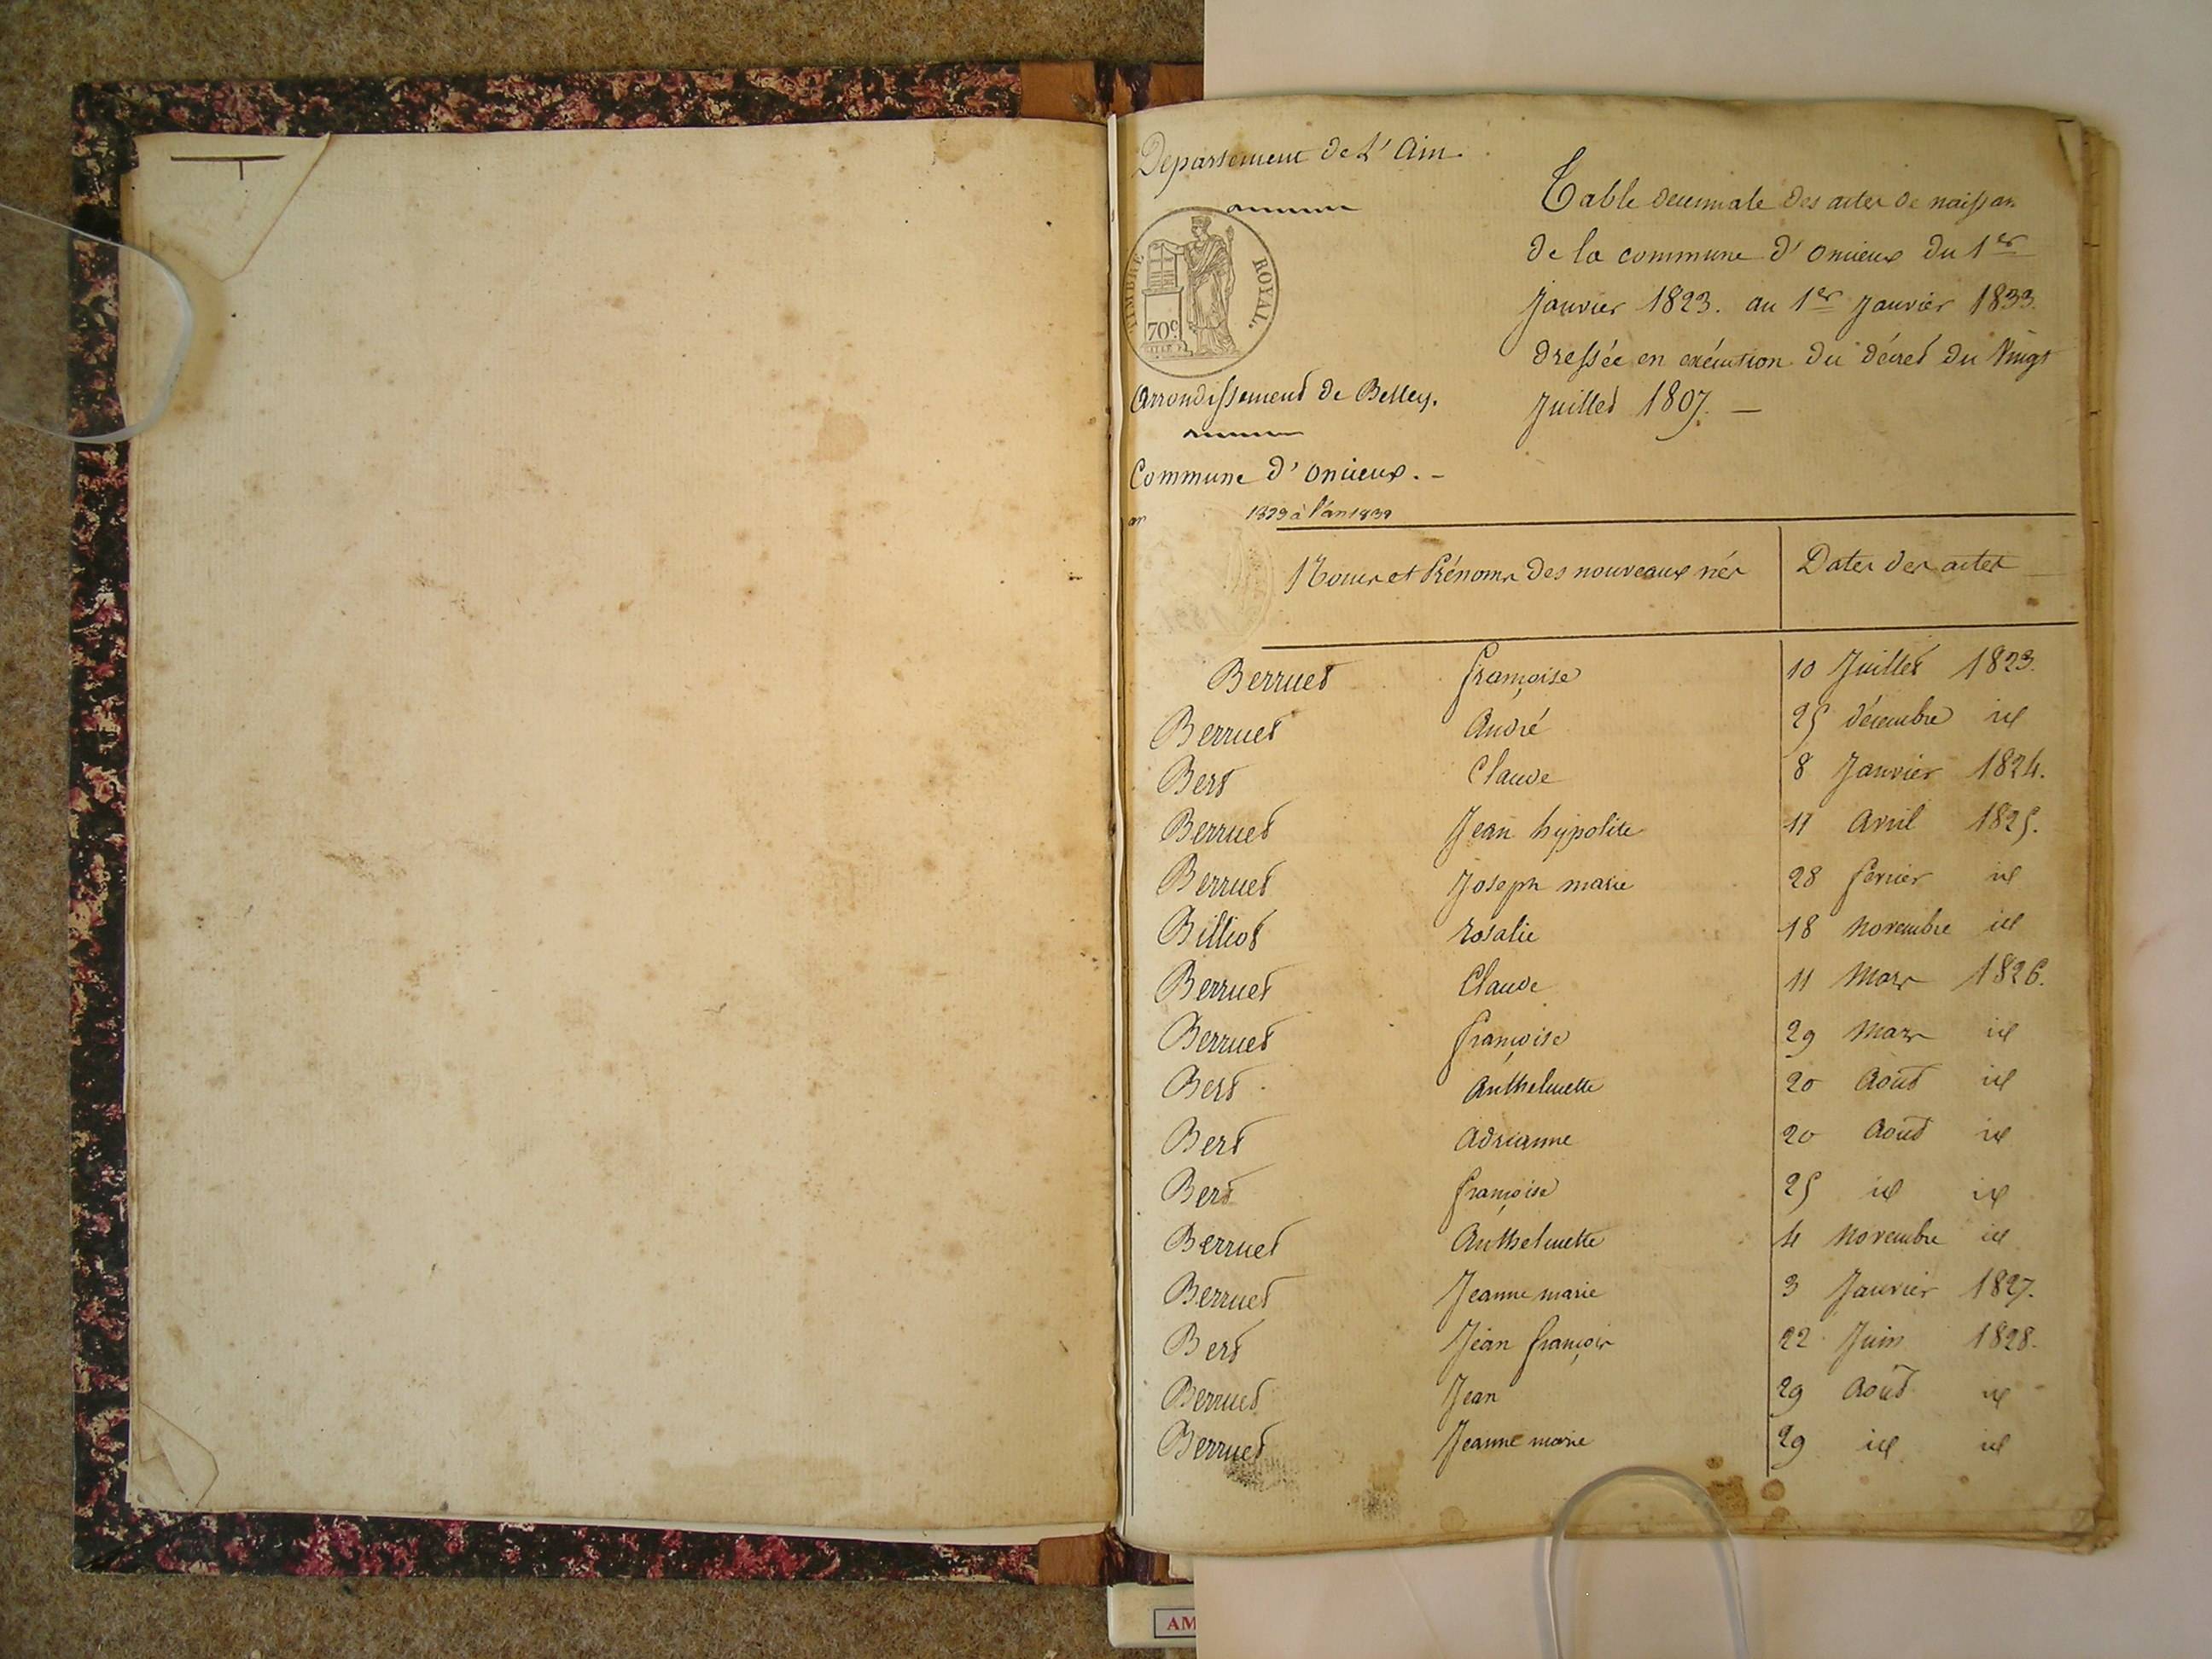 Département de L'Ain.
TIMBRE ROYAL.
70c
Arrondissement de Belley.
Commune d'Oncieux. -
an 1823 à l'an 1832
Table décennale des actes de naissan
de la commune d'Oncieux du 1er
Janvier 1823. au 1er Janvier 1833.
dressée en exécution du décret du Vingt
Juillet 1807. —
Noms et Prénoms des nouveaux nés Dates des actes
Berruet françoise 10 Juillet 1823.
Berruet André 25 décembre id
Bert Claude 8 Janvier 1824.
Berruet Jean hypolite 17 Avril 1825.
Berruet Joseph marie 28 fevrier id
Billiot rosalie 18 Novembre id
Berruet Claude 11 Mars 1826.
Berruet françoise 29 Mars id
Bert Anthelmette 20 Août id
Bert Adrianne 20 Août id
Bert françoise 25 id id
Berruet Anthelmette 4 Novembre id
Berruet Jeanne marie 3 Janvier 1827.
Bert Jean françois 22 Juin 1828.
Berruet Jean 29 Août id
Berruet Jeanne marie 29 id id
AM